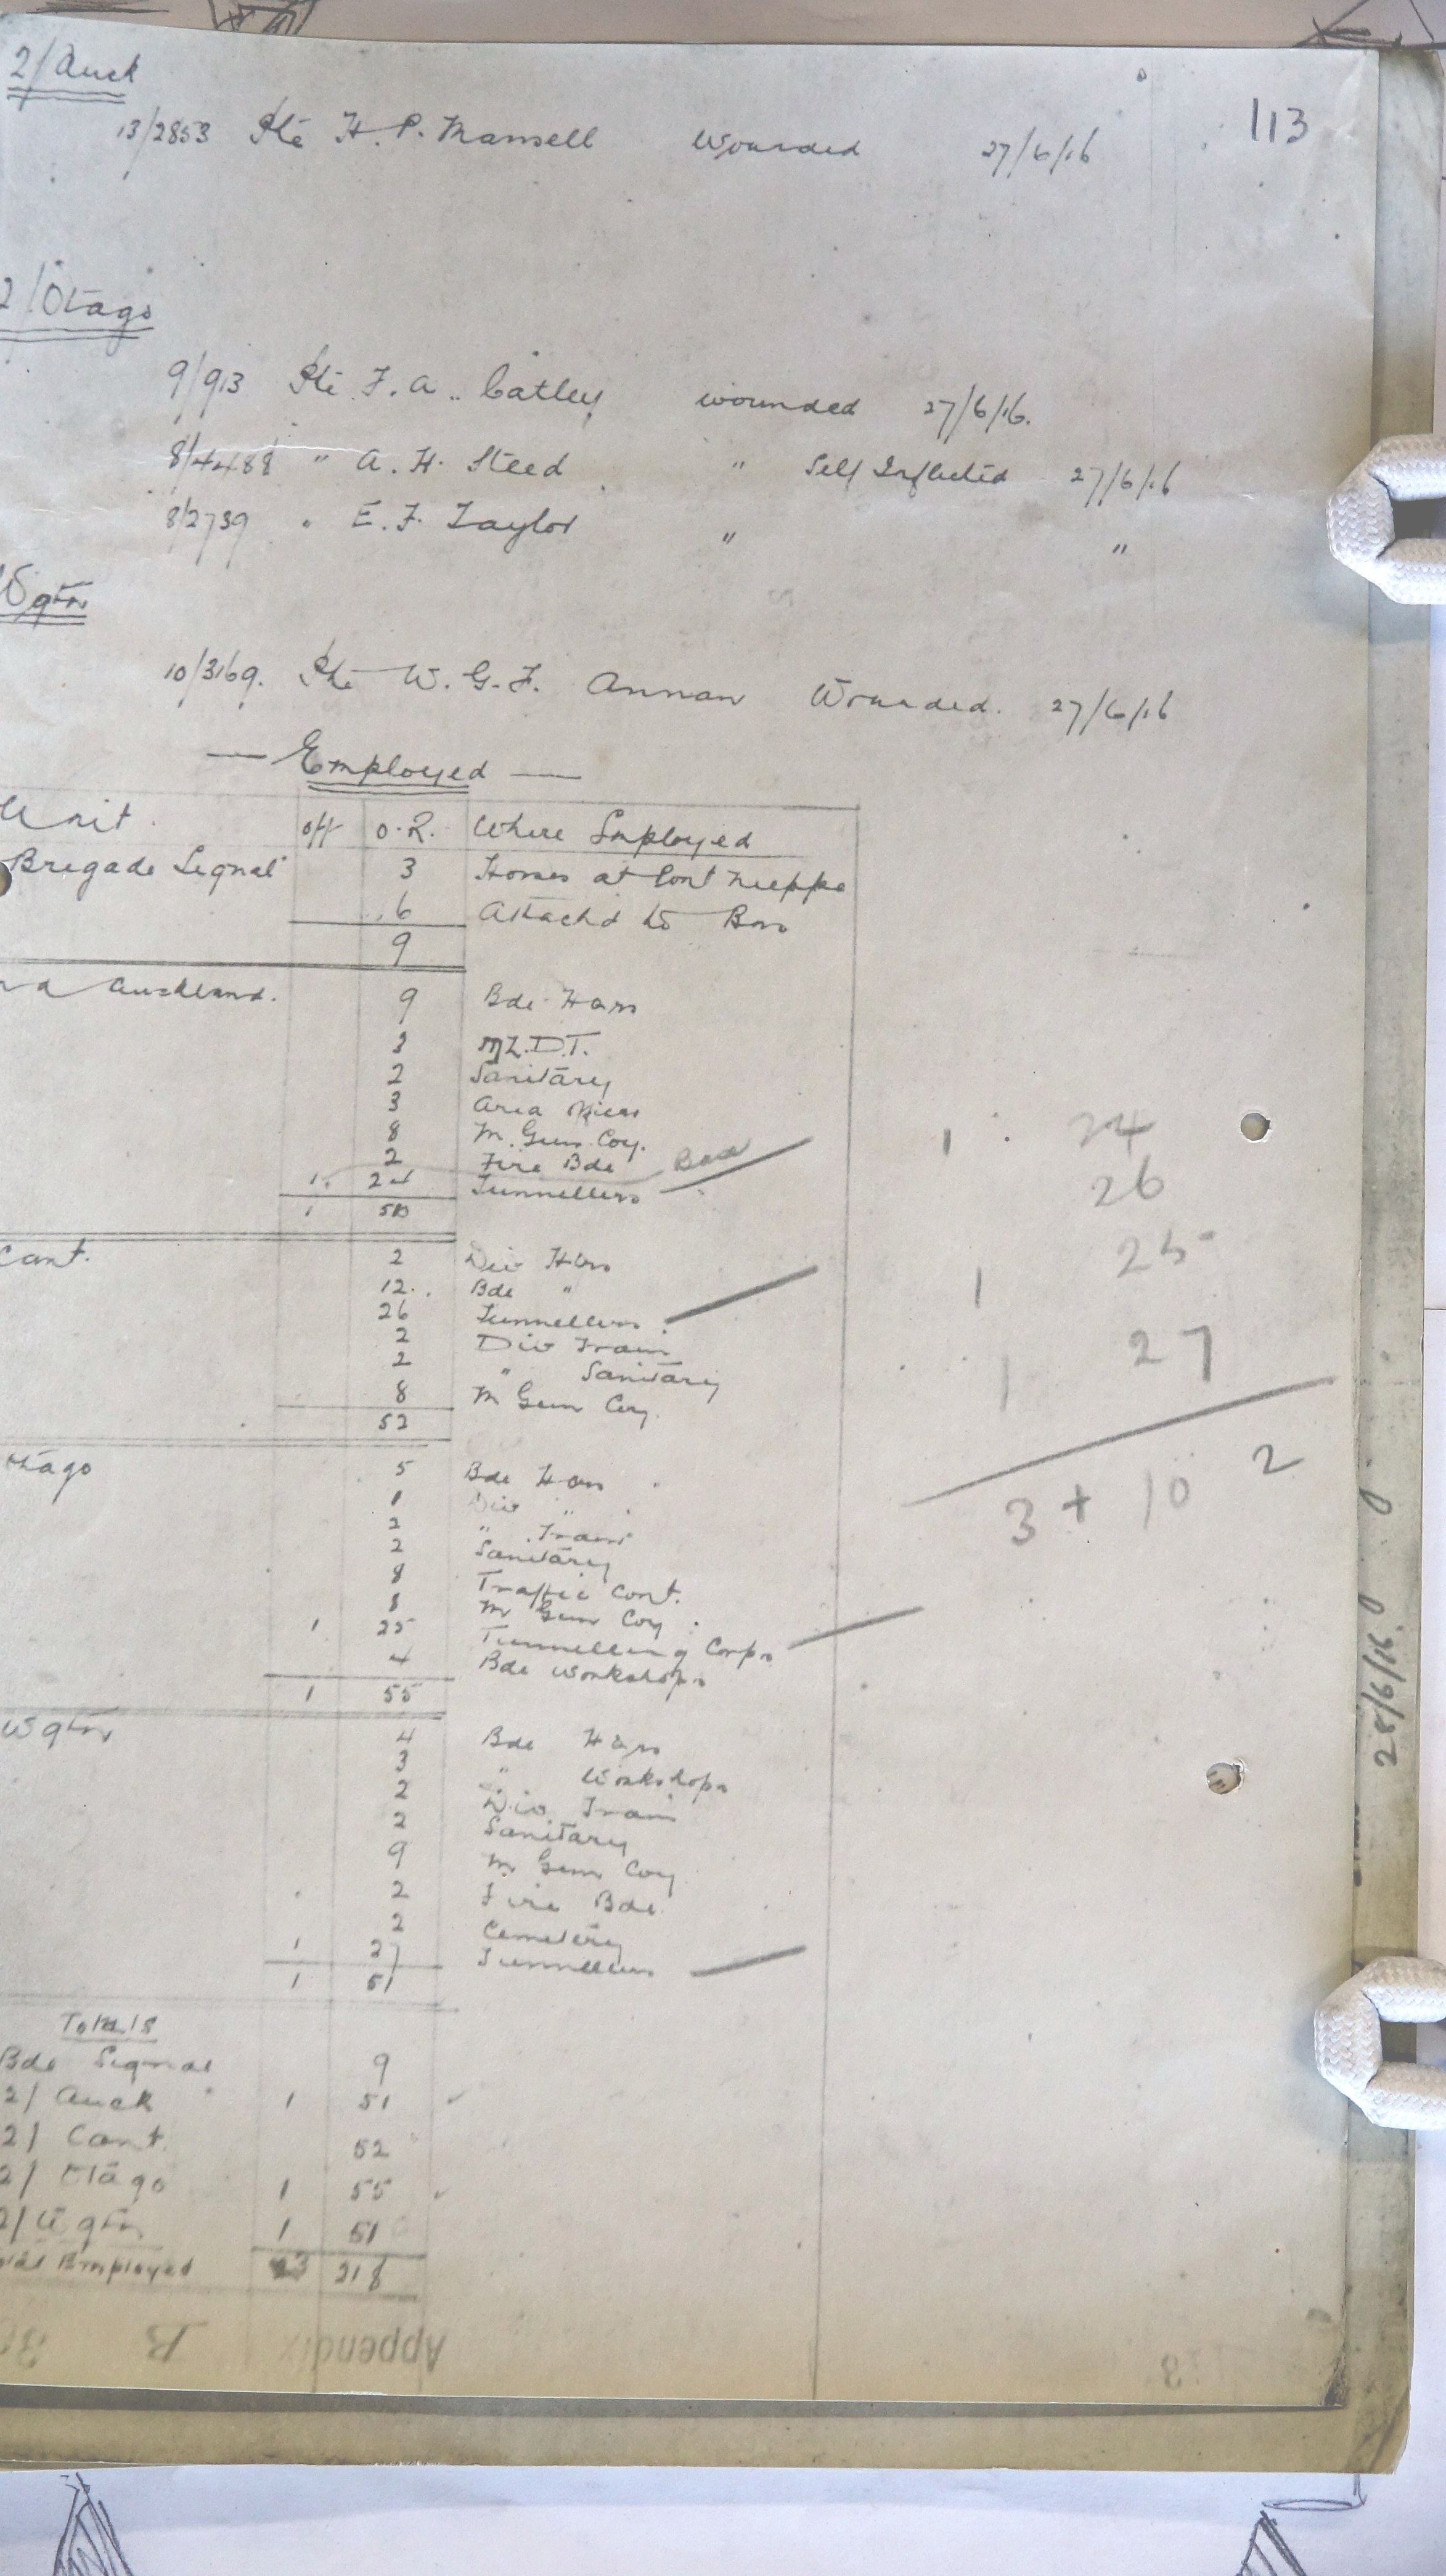 2/Auck
113
13/2853 Pte H. P. Mansell Wounded 27/6/16
2/Otago
9/913 Pte F. A. Catley wounded 27/6/16.
8/4488 " A. H. Steed " Self Inflicted 27/6/16
8/2739 " E. F. Taylor " "
Wgtn
10/3169. Pte W. G. F. Annan Wounded. 27/6/16
— Employed —
Unit. Off O.R. Where Employed
Brigade Signal 3 Horses at Pont Nieppe
6 Attachd to Bns
9
Auckland. 9 Bde Hqrs
3
2 Sanitary
3 Area
8 M. Gun Coy.
2 Fire Bde
1 24 Tunnellers
1
Cant. 2 Div Hqrs
12 Bde "
26 Tunnellers
2 Div Train
2 " Sanitary
8 M Gun Coy
52
tago 5 Bde Hqrs
1 Div "
2 " Train
2 Sanitary
8 Traffic Cont.
8 M Gun Coy
1 25 Tunnelling Corps
4 Bde Workshops
1 55
Wgtn 4 Bde Hqrs
3 " Workshops
2 Div Train
2 Sanitary
9 M Gun Coy
2 Fire Bde
2 Cemetery
1 27 Tunnellers
1 51
Totals
Bde Signal 9
2/ Auck 1 51
2/ Cant. 52
2/ Otago 1 55
2/ Wgtn 1 51
Employed 3 218
Appendix B
1 24
26
1 25
1 27
3 + 10 2
28/6/16